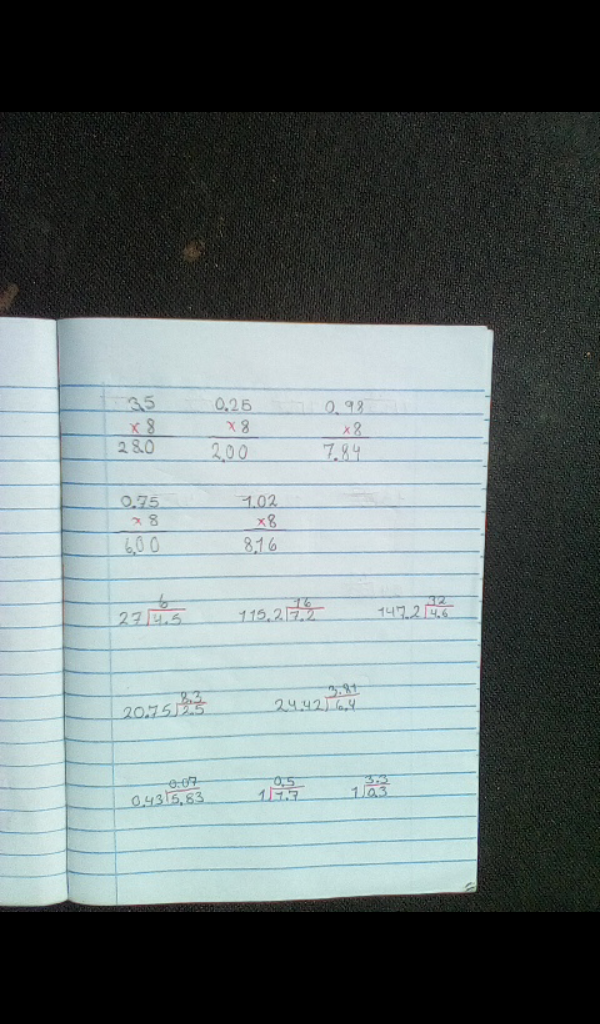 3.5 0.25 0.98
x 8 x 8 x8
280 2,00 7.84
0.75 1.02
x 8 x8
6,00 8.16
6 16 32
27 4.5 115.2 7.2 147.2 4.6
8.3 3.81
20.75 2.5 24.42 6.4
0.07 0.5 3.3
0.43 5.83 1 1.7 1 0.3